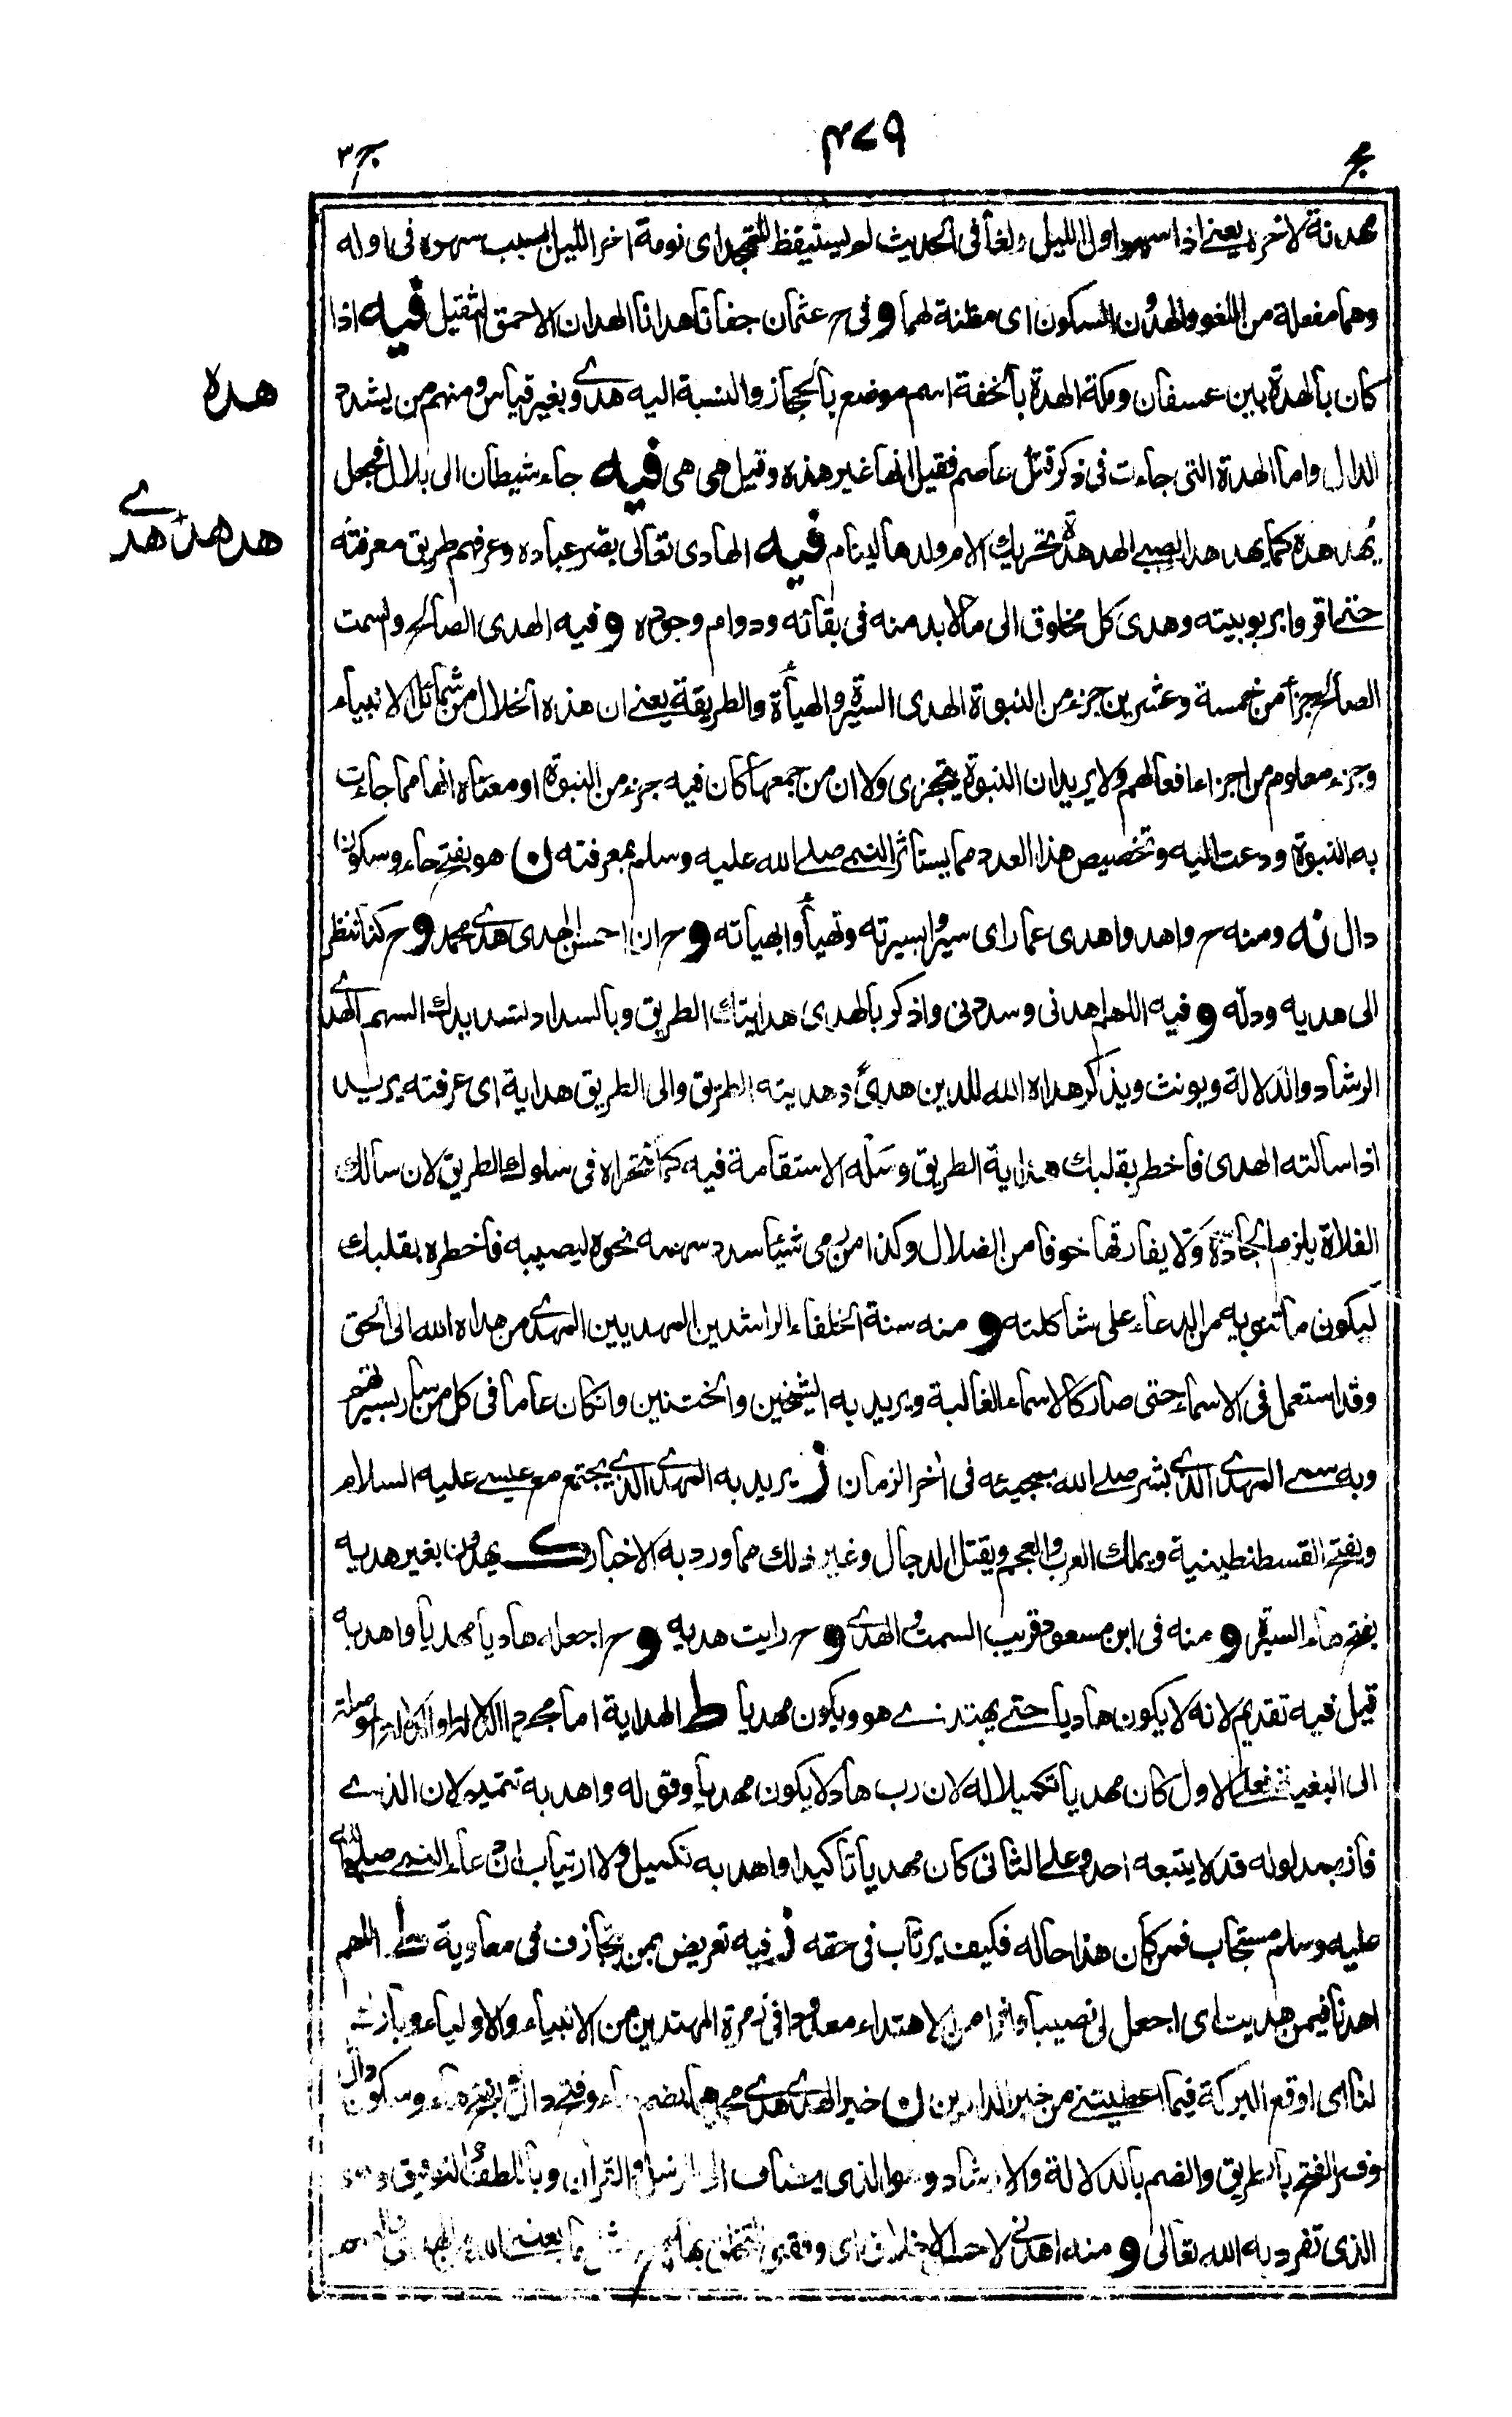 مج
٤٧٩
ج٣
مهدنة لاخره يعني اذا سهر اول الليل ولغا في الحديث لم يستيقظ للتهجد اي نومة اخر الليل بسبب سهره في اوله
وهما مفعلة من اللغو والهدون السكون اي مظنة لهما و في ح عثمان جفاتا هدانا الهدان الاحمق الثقيل فيه اذا
هده
كان بالهدة بين عسفان ومكة الهدة بالخفة اسم موضع بالحجاز والنسبة اليه هدوي بغير قياس ومنهم من يشدد
الدال واما الهدة التي جاءت في ذكر قتل عاصم فقيل انها غير هذه وقيل هي هي فيه جاء شيطان الى بلال فجعل
هدهد هدي
يهدهده كما يهدهد الصبي الهدهدة تحريك الام ولدها لينام فيه الهادي تعالى بصر عباده وعرفهم طريق معرفته
حتى اقروا بربوبيته وهدى كل مخلوق الى ما لا بد منه في بقائه ودوام وجوده و فيه الهدي الصالح والسمت
الصالح جزأ من خمسة وعشرين جزء من النبوة الهدي السيرة والهيأة والطريقة يعني ان هذه الخلال من شمائل الانبياء
وجزء معلوم من اجزاء افعالهم ولا يريد ان النبوة يتجزى ولا ان من جمعها كان فيه جزء من النبوة او معناه انها مما جاءت
به النبوة ودعت اليه وتخصيص هذا العدد مما يستأثر النبي صلى الله عليه وسلم بمعرفته ن هو بفتح هاء وسكون
دال نه ومنه ح واهدوا هدي عمار اي سيروا بسيرته وتهيأوا بهيأته و ح ان احسن الهدي هدي محمد و ح كنا ننظر
الى هديه ودله و فيه اللهم اهدني وسددني واذكر بالهدى هدايتك الطريق وبالسداد تسديدك السهم الهدى
الرشاد والدلالة ويونث ويذكر هداه الله للدين هدى وهديته الطريق والى الطريق هداية اي عرفته يريد
اذا سالته الهدى فاخطر بقلبك هداية الطريق وسله الاستقامة فيه كما تتحراه في سلوك الطريق لان سالك
الفلاة يلزم الجادة ولا يفارقها خوفا من الضلال وكذا من رمى شيئا سدد سهمه نحوه ليصيبه فاخطره بقلبك
ليكون ما تنويه من الدعاء على شاكلته و منه سنة الخلفاء الراشدين المهديين المهدي من هداه الله الى الحق
وقد استعمل في الاسماء حتى صار كالاسماء الغالبة ويريد به الشيخين والختنين وان كان عاما في كل من سار بسيرتهم
وبه سمي المهدي الذي بشر صلى الله بمجيئه في اخر الزمان ز يريد به المهدي الذي يجتمع مع عيسى عليه السلام
ويفتح القسطنطينية ويملك العرب والعجم ويقتل الدجال وغير ذلك مما ورد به الاخبار ك يهدون بغير هديه
بفتح هاء السيرة و منه في ابن مسعود قريب السمت والهدي و ح رايت هديه و ح اجعله هاديا مهديا واهد به
قيل فيه تقديم لانه لا يكون هاديا حتى يهتدي هو ويكون مهديا ط الهداية اما مجرد الدلالة او الدلالة الموصلة
الى البغية فعلى الاول كان مهديا تكميلا له لان رب هاد لا يكون مهديا وقوله واهد به تتميم لان الذي
فاز بمدلوله قد لا يتبعه احد وعلى الثاني كان مهديا تأكيدا واهد به تكميل ولا ارتياب ان دعاء النبي صلى الله
عليه وسلم مستجاب فمن كان هذا حاله فكيف يرتاب في حقه ز فيه تعريض بمن يجازف في معاوية ط اللهم
اهدنا فيمن هديت اي اجعل لي نصيبا وافرا من الاهتداء معدودا في زمرة المهتدين من الانبياء والاولياء وبارك
لنا اي اوقع البركة فيما اعطيتني من خير الدارين ن خير الهدي هدي محمد هما بضم هاء وفتح دال وبفتح هاء وسكون دال
وفسر الفتح بالطريق والضم بالدلالة والارشاد وهو الذي يضاف الى الرسل والقران وباللطف والتوفيق وهو
الذي تفرد به الله تعالى و منه اهدني لاحسن الاخلاق اي وفقني للتخلق بها